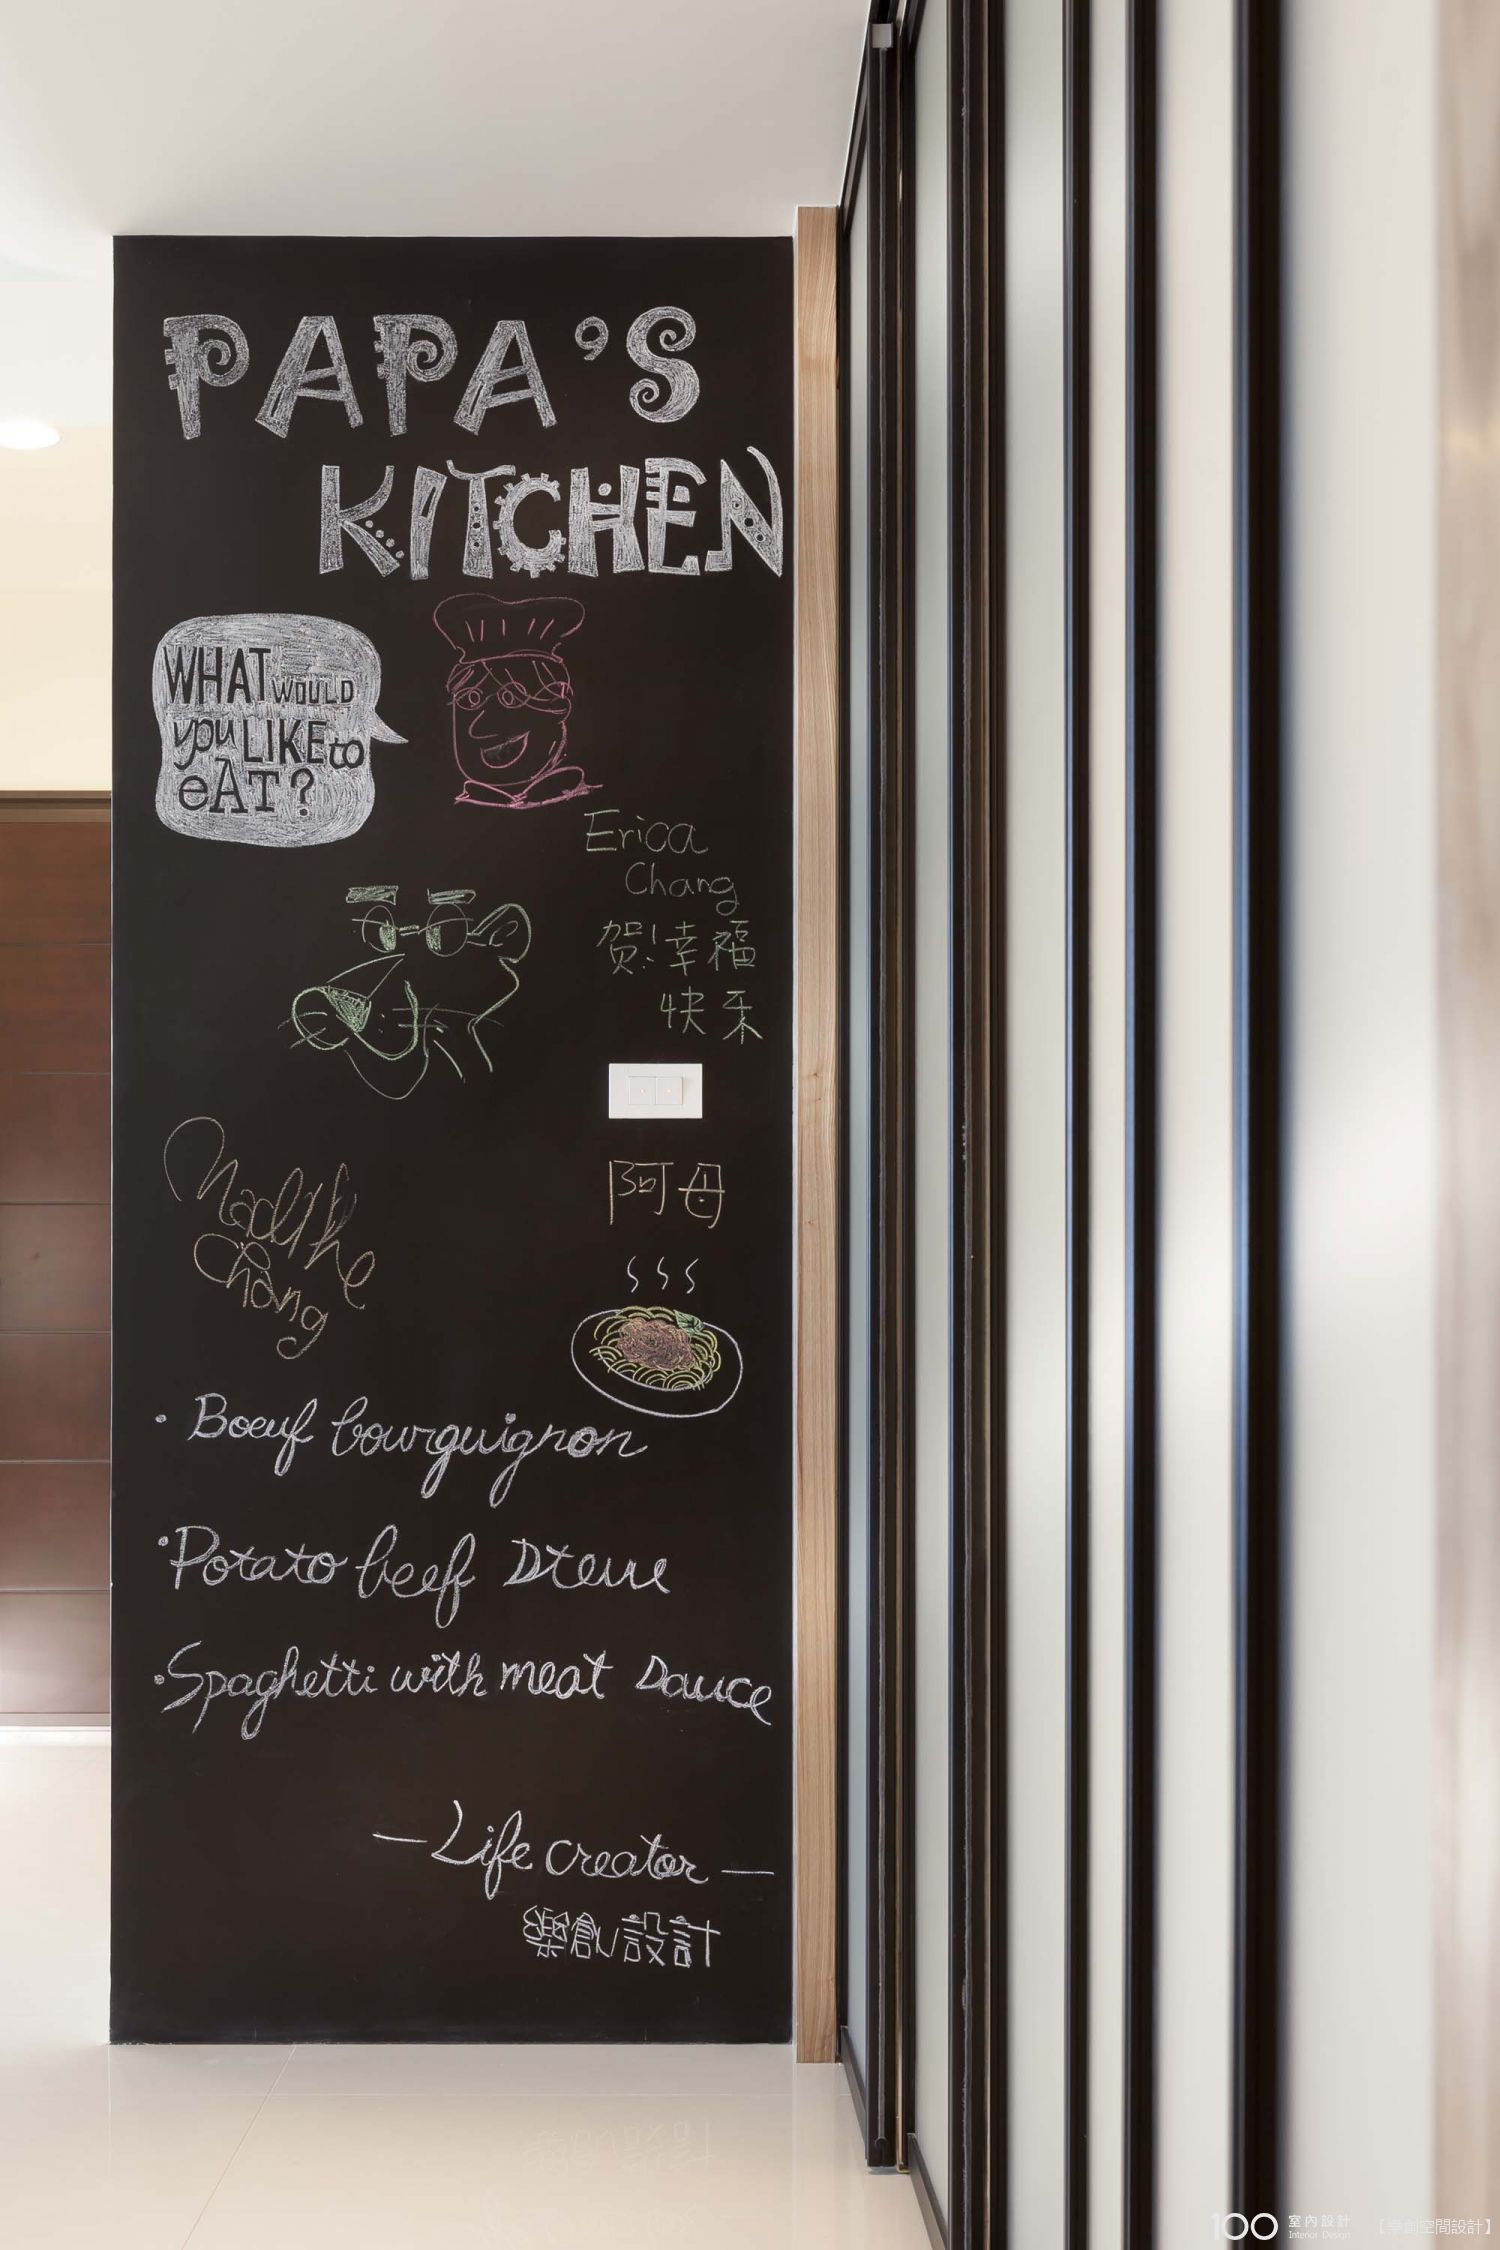 PAPA'S
KITCHEN
WHAT WOULD
you LIKE to
eAT?
Erica
Chang
贺!幸福
快禾
阿母
Chang
· Boeuf bourguignon
· Potato beef Stew
· Spaghetti with meat Sauce
— Life creator —
樂創設計
100 室內設計
Interior Design
【樂創空間設計】